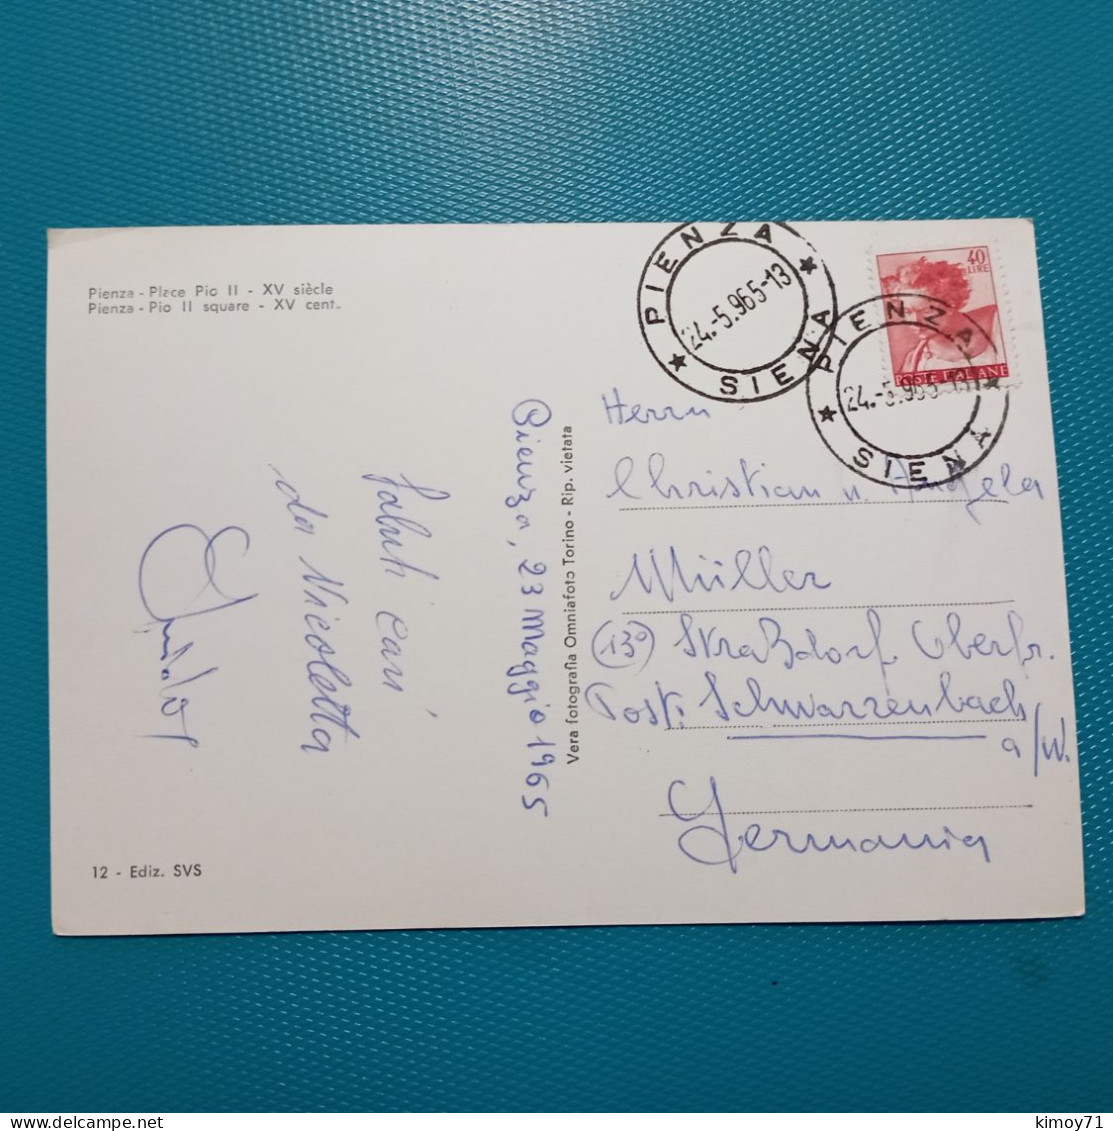 Pienza - Place Pio II - XV siècle
Pienza - Pio II square - XV cent.
PIENZA
24.-5.965-13
SIENA
40
LIRE
POSTE ITALIANE
PIENZA
24.-5.965-13
SIENA
Pienza, 23 Maggio 1965
Saluti cari
da Nicoletta
Vera fotografia Omniafoto Torino - Rip. vietata
Herrn
Christian u. Angela
Müller
(13a) Straßdorf Oberfr.
Post: Schwarzenbach
a/W.
Germania
12 - Ediz. SVS
kimoy71